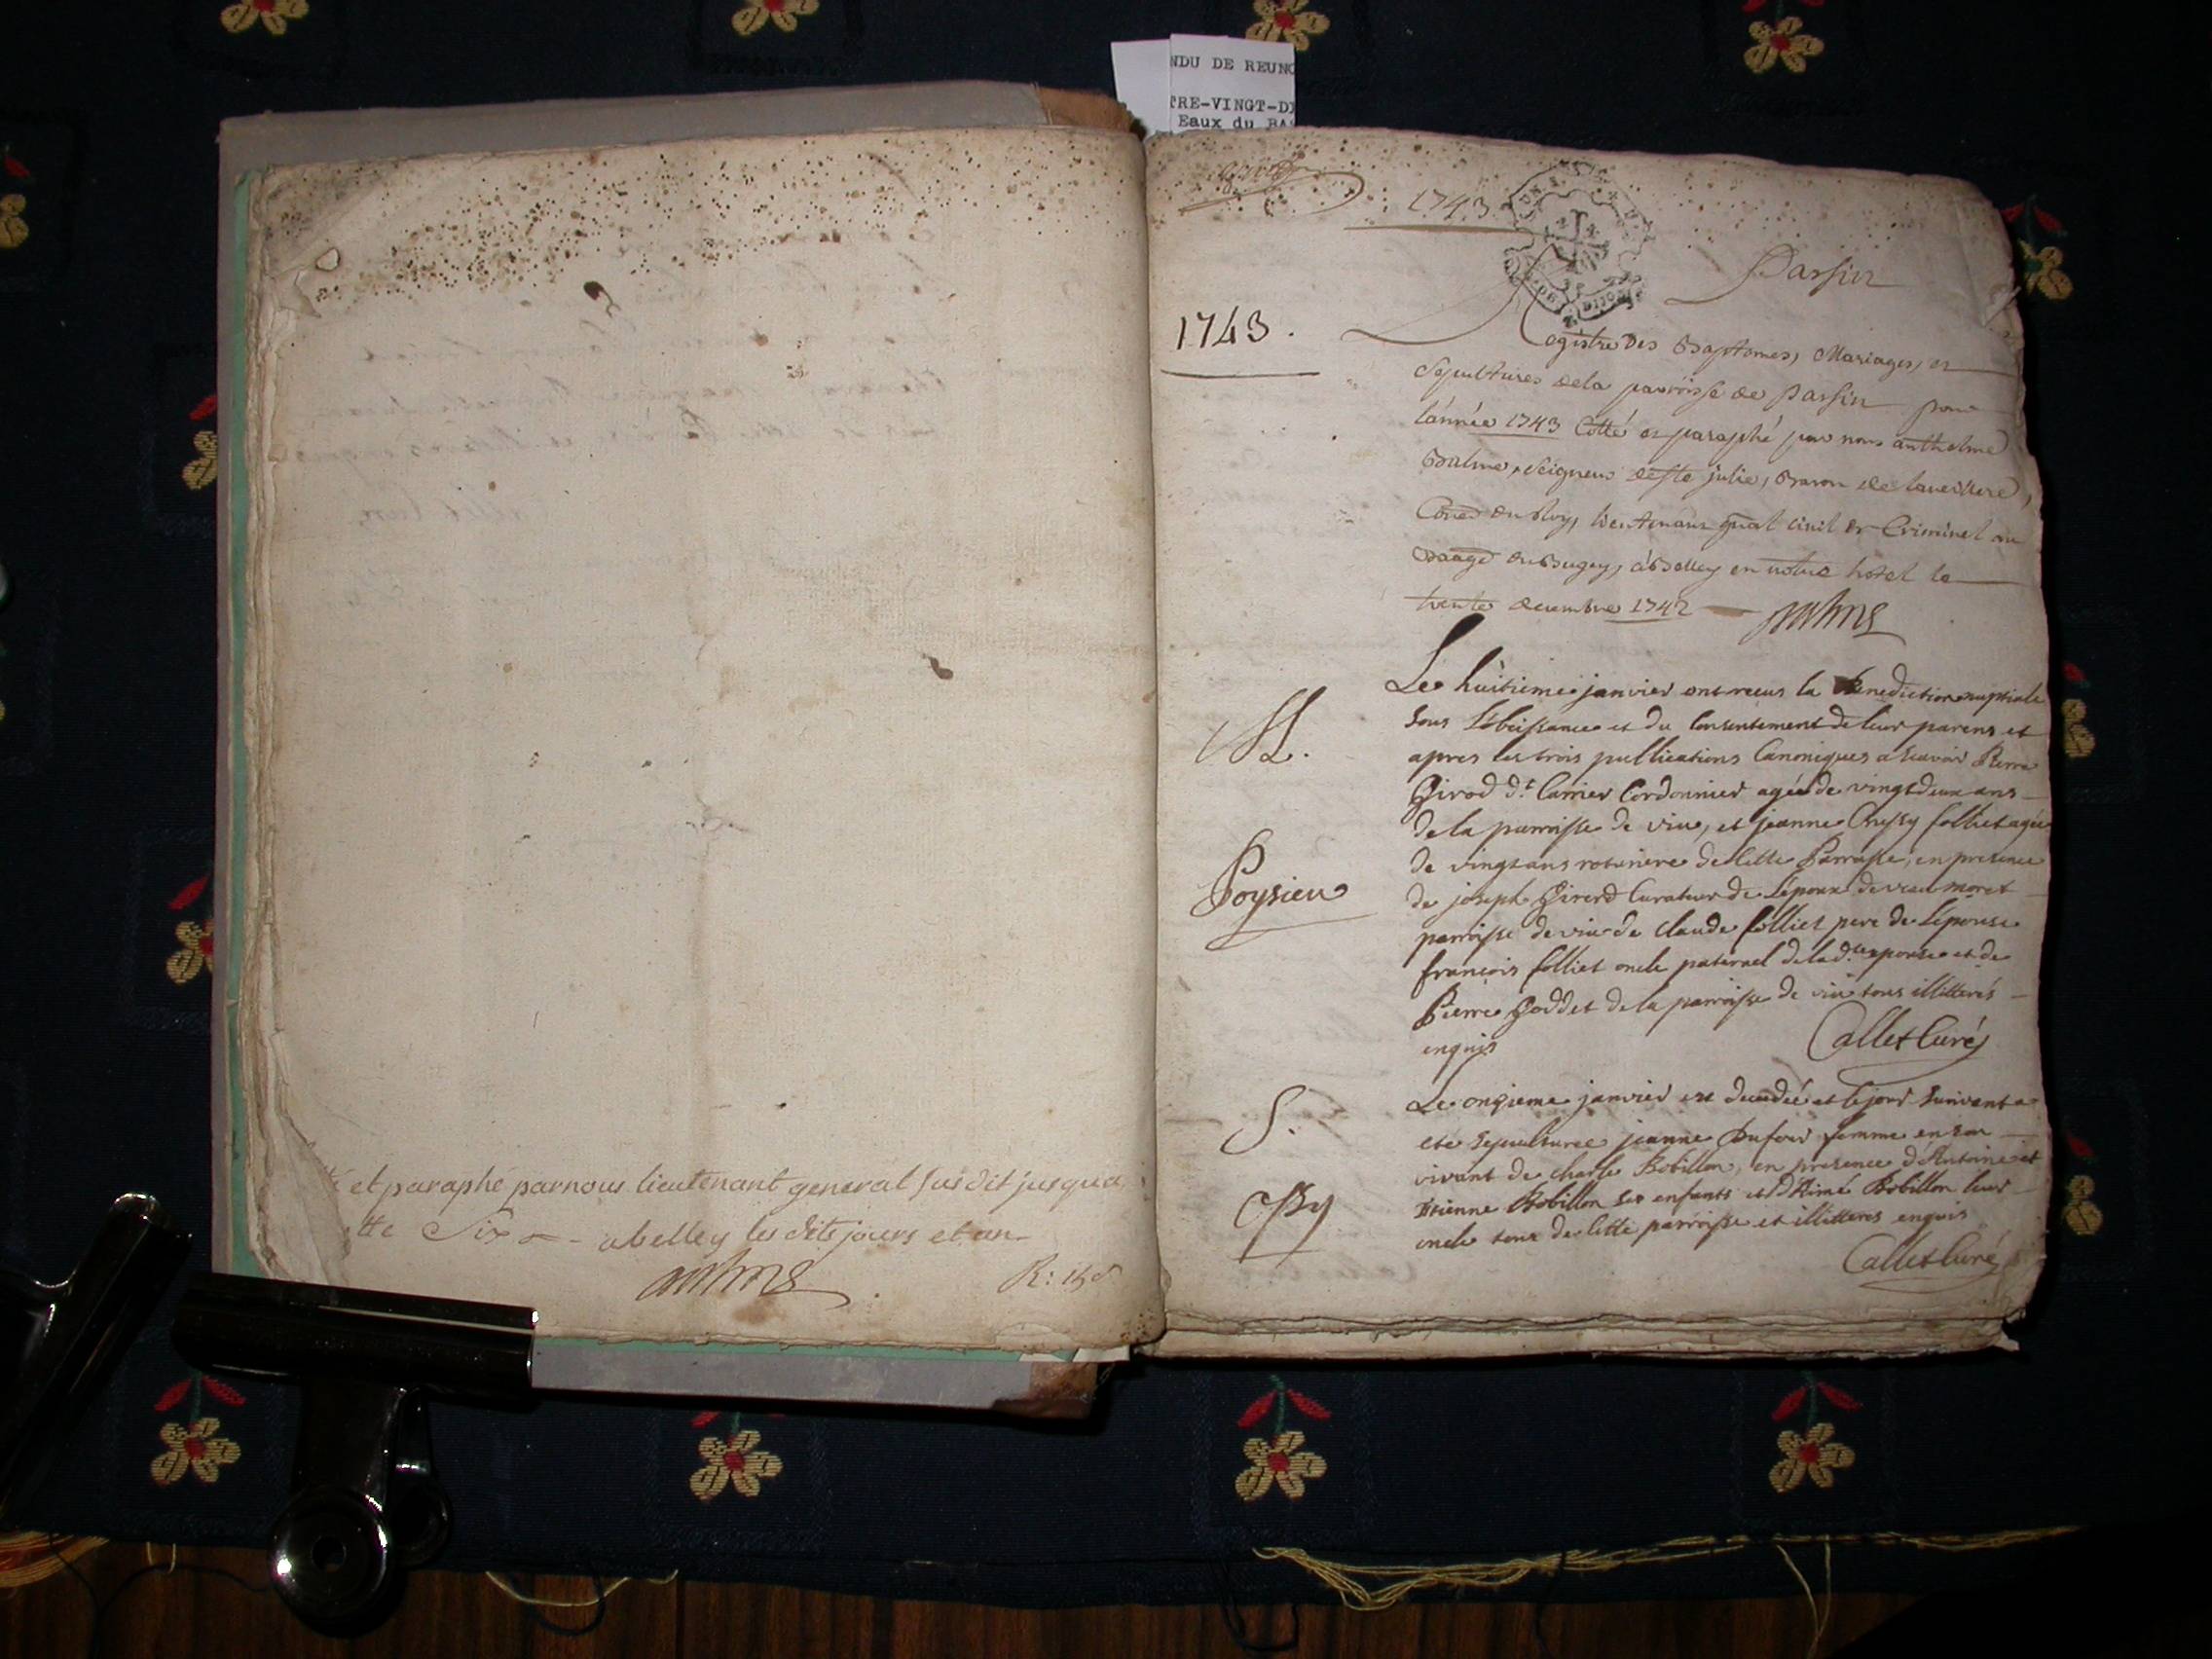 NDU DE REUNO
TRE-VINGT-DI
Eaux du BAS
et paraphé par nous lieutenant general susdit jusqu'a
Six - a belley les dits jours et an
1743
Passin
1743.
Registre des Baptemes, Mariages, et
Sepultures de la parroisse de Passin pour
l'année 1743 Cotté et paraphé par nous anthelme
Balme, Seigneur de ste julie, Baron de
Coner du Roy, lieutenant gnal civil et Criminel au
Baage du Bugey, à Belley en notre hotel le
trente decembre 1742
M.
Poysieu
Le huitieme janvier ont recus la Benediction nuptiale
sous l'obeissance et du Consentement de leur parens et
apres les trois publications Canoniques a scavoir Pierre
Girod dt Carrier Cordonnier agée de vingt deux ans
de la parroisse de viu, et jeanne folliet agée
de vingt ans de Cette Parroisse, en presence
de joseph Girerd Curateur de l'époux de
parroisse de viu de Claude folliet pere de l'épouse
françois folliet oncle paternel de lad.te epouse et de
Pierre Goddet de la parroisse de viu tous illitterés
enquis
Callet Curé
S.
Le onzieme janvier est decedée et le jour suivant a
eté sepulturee jeanne Dufour femme en son
vivant de Charle Bobillon, en presence d'Antoine et
Etienne Bobillon ses enfants et d'Aimé Bobillon leur
oncle tous de Cette parroisse et illitteres enquis
Callet Curé